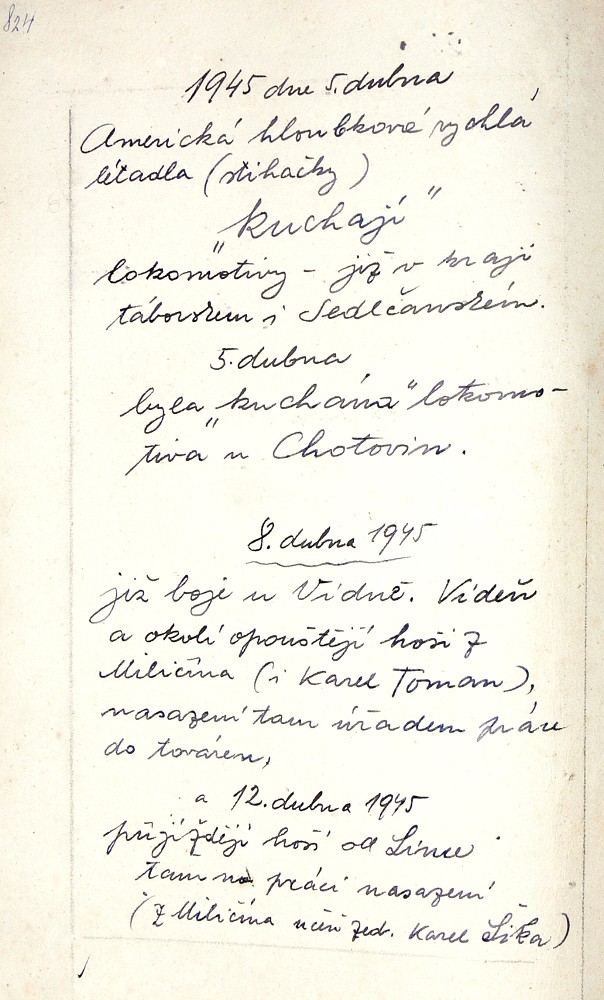 824
1945 dne 5. dubna
Americká hloubková rychlá
létadla (stihačky)
"kuchají"
lokomotivy - již v kraji
táborskem i Sedlčanském.
5. dubna
byla "kuchána" lokomo-
tiva u Chotovin.
8. dubna 1945
již boje u Vídně. Vídeň
a okolí opouštějí hoši z
Miličína (i Karel Toman),
nasazení tam úřadem práce
do továren,
a 12. dubna 1945
přijíždějí hoši od Lince
tam na práci nasazení
(z Miličína učeň zed. Karel Šíka)